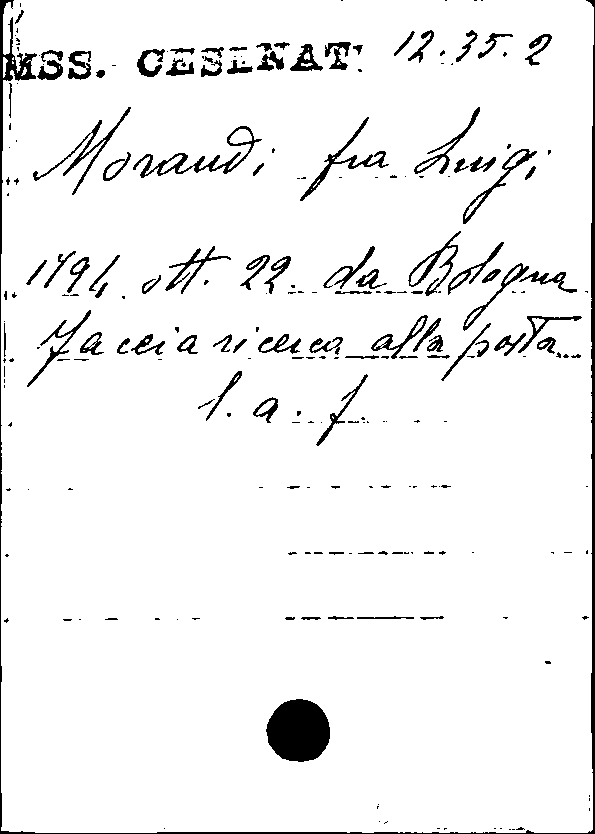 MSS. CESENATI 12.35.2
Morandi fra Luigi
1794 ott. 22. da Bologna
Faccia ricerca alla posta
l. a. f.